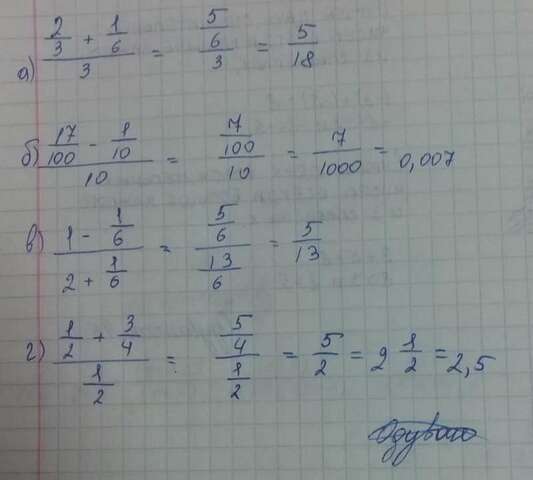 а) (2/3 + 1/6)/3 = (5/6)/3 = 5/18
б) (17/100 - 1/10)/10 = (7/100)/10 = 7/1000 = 0,007
в) (1 - 1/6)/(2 + 1/6) = (5/6)/(13/6) = 5/13
г) (1/2 + 3/4)/(1/2) = (5/4)/(1/2) = 5/2 = 2 1/2 = 2,5